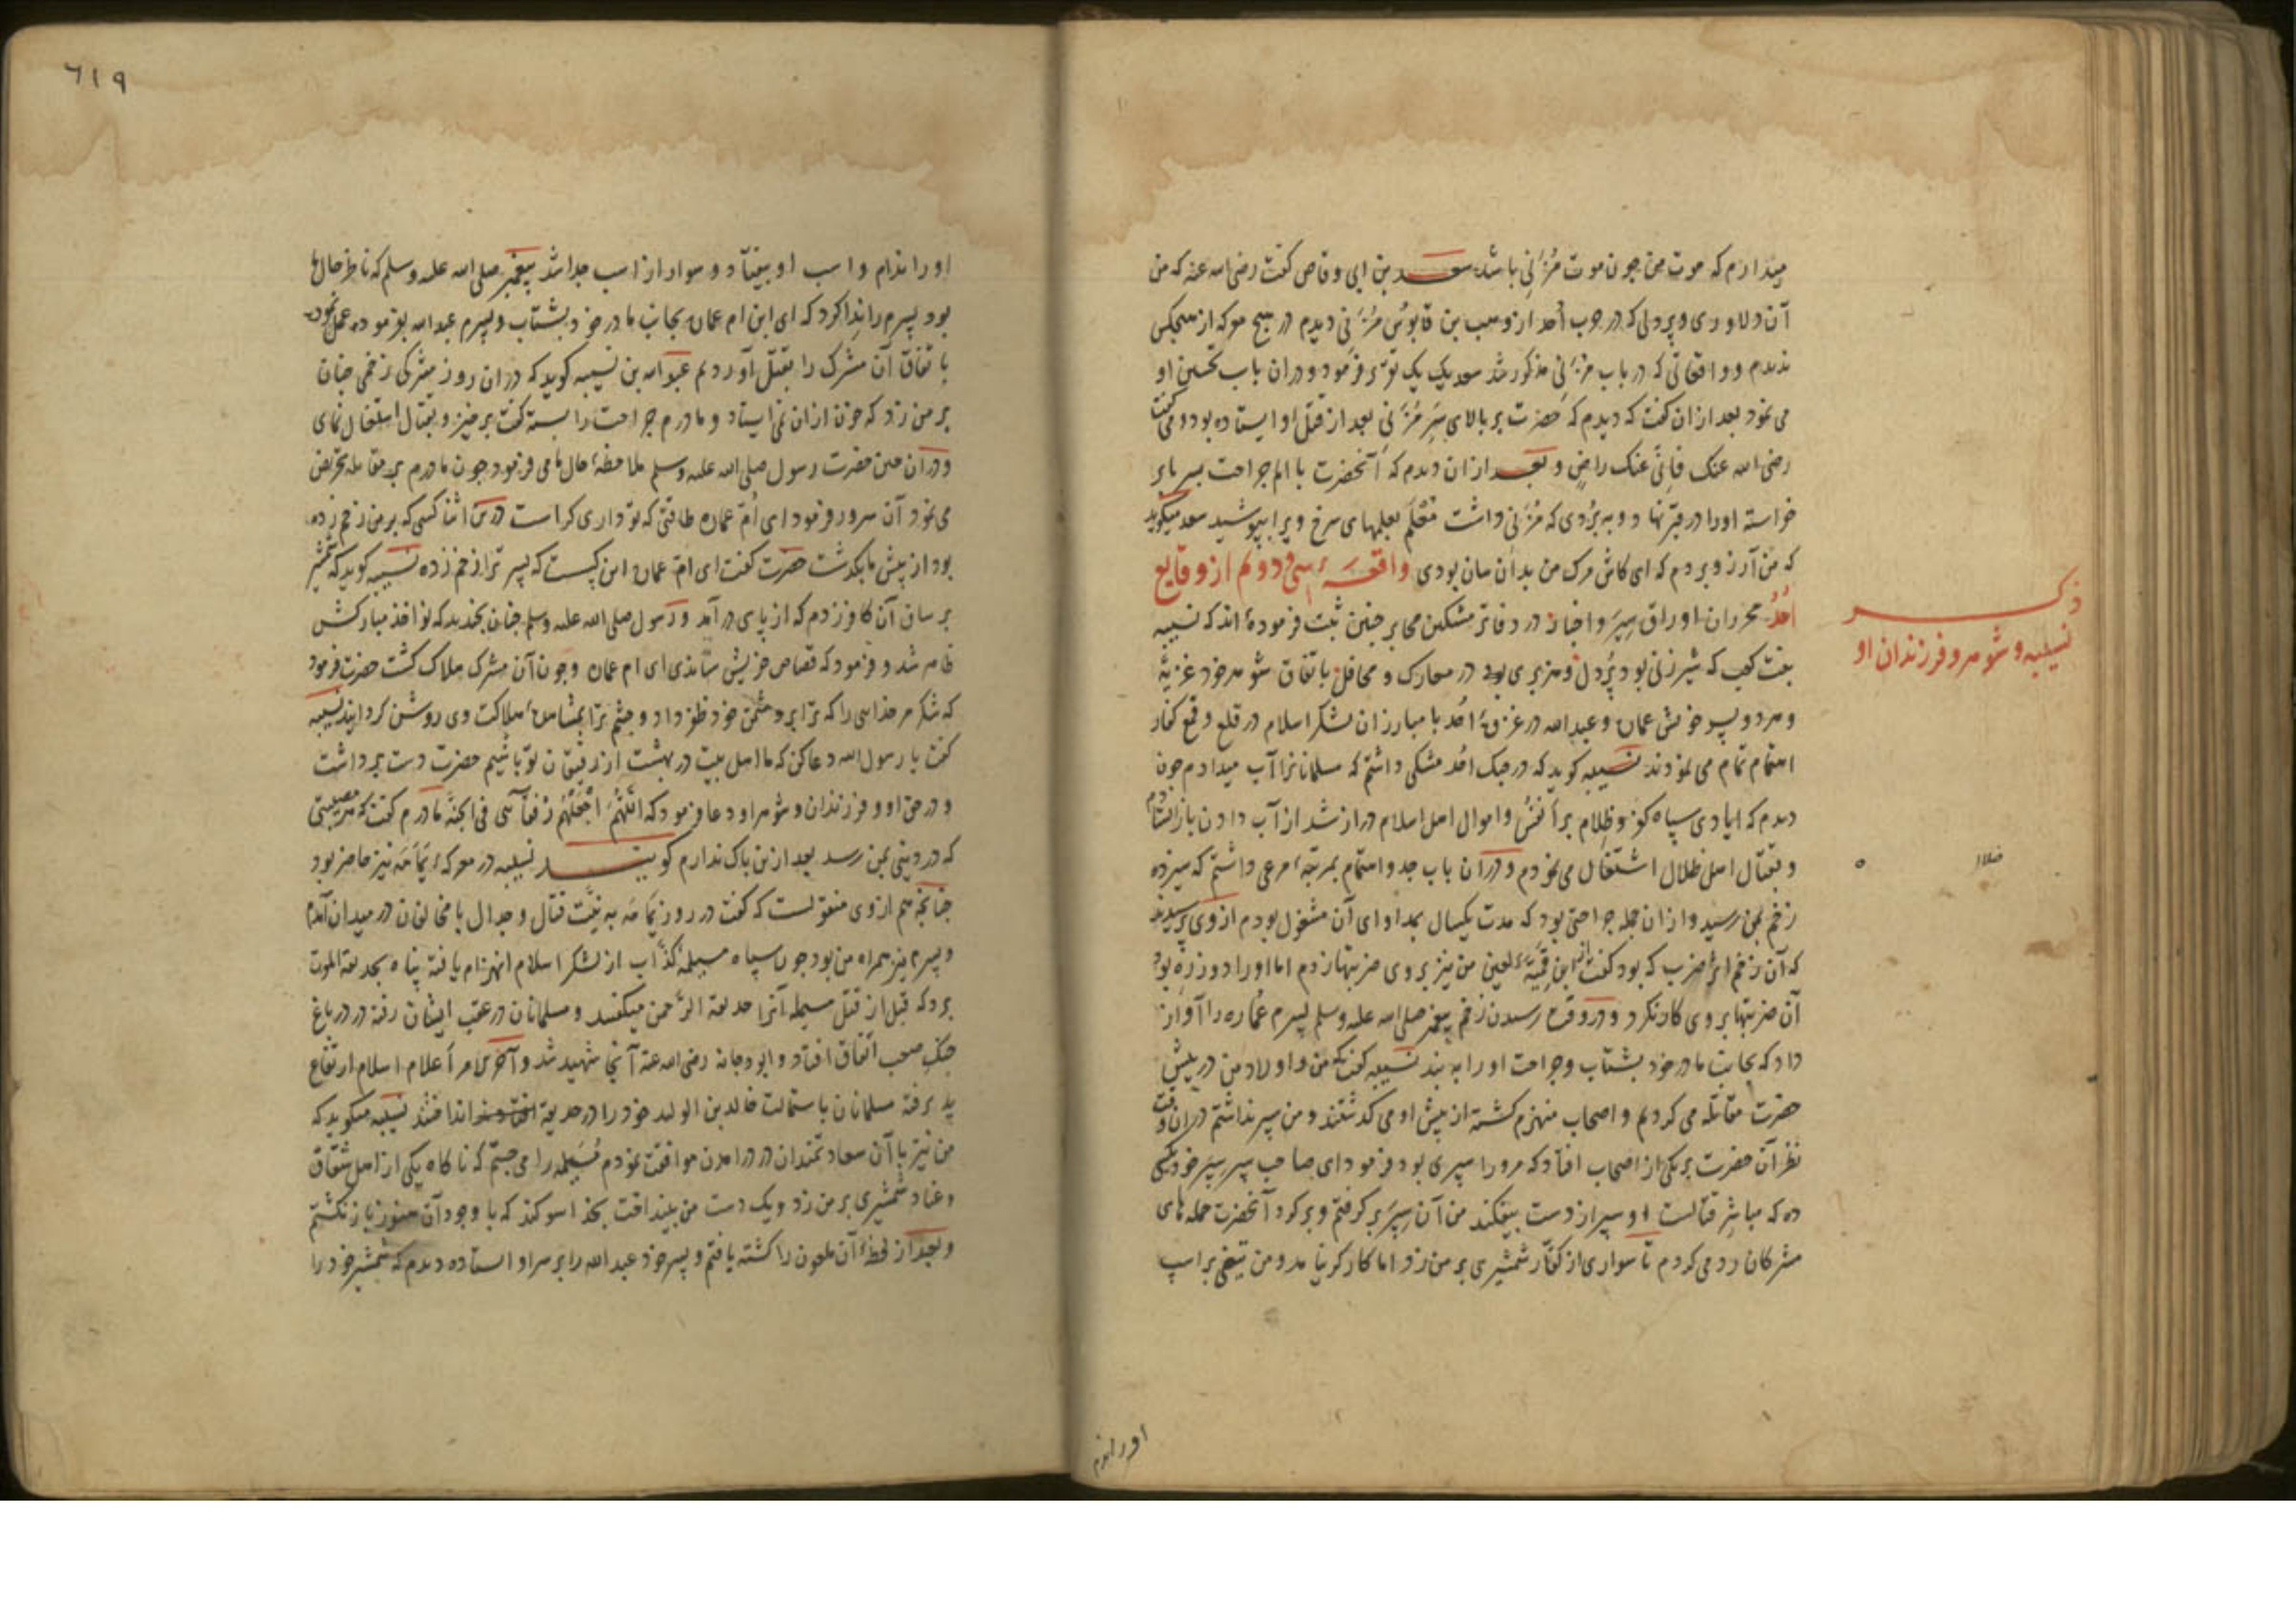 میدارم که موت من چون موت مُزَنی باشد سعد بن ابی وقاص گفت رضی الله عنه که من
آن دلاوری و پردلی که در حرب اُحد از وهب بن قابوس مُزَنی دیدم در هیچ معرکه از هیچکس
ندیدم و واقعاتی که در باب مزنی مذکور شد سعد یک یک تقریر فرمود و در ان باب تحسین او
می نمود بعد ازان گفت که دیدم که حضرت بر بالای سَرِ مُزَنی بعد از قتل او ایستاده بود و می گفت
رضی الله عنک فانّی عنک راضٍ و بعد ازان دیدم که آنحضرت با الم جراحت بر پای
خواسته اورا در قبر نهاد و به بُردی که مُزَنی داشت مُعَلَّم بعلمهای سرخ ویرا بپوشید سعد میگوید
که من آرزو بردم که ای کاش مرک من بدان سان بودی واقعه سی و دوم از وقایع
اُحُد محرران اوراق سِیَر و اخبار در دفاتر مشکین محابر چنین ثبت فرموده اند که نسیبه
ذکر
نسیبه و شوهر و فرزندان او
بنت کعب که شیرزنی بود پُردل و هزبری بود در معارک و محافل باتفاق شوهر خود غزیّة
و هر دو پسر خویش عماره و عبدالله در غزوهٔ اُحُد با مبارزان لشکر اسلام در قلع و قمع کفار
اهتمام تمام می نمودند نسیبه گوید که در جنک احُد مشکی داشتم که مسلمانانرا آب میدادم چون
دیدم که ایادی سپاه کفر و ظلام بر انفسُ و اموال اهل اسلام دراز شد از آب دادن باز ایستادم
و بقتال اهل ظلال اشتغال می نمودم و دران باب جد و اهتمام بمرتبهٔ مرعی داشتم که سیزده
زخم بمن رسید و ازان جمله جراحتی بود که مدت یکسال بمداوای آن مشغول بودم ازوی پرسیدند
که آن زخم از ضرب که بود گفت از ابن قمیّهٔ لعین من نیز بروی ضربتها زدم اما اورا دو زره بود
آن ضربتها بروی کار نکرد و در وقت رسیدن زخم پیغمبر صلی الله علیه وسلم پسرم عُماره را آواز
داد که بجانب مادر خود بشتاب و جراحت اورا به بند نسیبه گفت که من و اولاد من در پیش
حضرت مقاتله می کردیم و اصحاب منهزم کشته از پیش او می گذشتند و من سپر نداشتم دران وقت
نظر آن حضرت بر یکی از اصحاب افتاد که مرورا سپری بود فرمود ای صاحب سپر سِپَر خود بکسی
ده که مباشر قتالست او سپر از دست بیفکند من آن سِپَر برگرفتم و بر گرد آنحضرت حمله های
مشرکان رد می کردم تا سواری از کفّار شمشیری بر من زد اما کارگر نیامد و من تیغی بر اسپ
اورا ندم
٦١٩
اورا ندم و اسب او بیفتاد و سوار از اسب جدا شد پیغمبر صلی الله علیه وسلم که ناظر حال ما
بود پسرم را نِدا کرد که ای ابن ام عماره بجانب مادر خود بشتاب و پسرم عبدالله بفرموده عمل نمود
باتفاق آن مشرک را بقتل آوردیم عبدالله بن نسیبه گوید که دران روز مشرکی زخمی چنان
بر من زد که خون ازان نمی ایستاد و مادرم جراحت را بسته گفت برخیز و بقتال اشتغال نمای
و دران حین حضرت رسول صلی الله علیه وسلم ملاحظهٔ حال ما می فرمود چون مادرم بر مقاتله تحریض
می نمود آن سرور فرمود ای اُمّ عماره طاقتی که تو داری کراست درین اثنا کسی که بر من زخم زده
بود از پیش ما بگذشت حضرت گفت ای امّ عماره این کیست که پسر ترا زخم زده نسیبه گوید که شمشیر
بر ساق آن کافر زدم که از پای درآمد و رسول صلی الله علیه وسلم چنان بخندید که نواجذ مبارکش
ظاهر شد و فرمود که قصاص خویش ستاندی ای ام عماره و چون آن مشرک هلاک گشت حضرت فرمود
که شکر مر خدای را که ترا بر دشمن خود ظفر داد و چشم ترا بمشاهدهٔ هلاکت وی روشن کردانید نسیبه
گفت یا رسول الله دعا کن که ما اهل بیت در بهشت از رفیقان تو باشیم حضرت دست برداشت
و در حق او و فرزندان و شوهر او دعا فرمود که اللّهُمَّ اجْعَلْهُم رُفَقآئی فی الجنّة مادرم گفت که هر مصیبتی
که در دینی بمن رسد بعد ازین باک ندارم گویند نسیبه در معرکهٔ یَمَامَه نیز حاضر بود
چنانچه هم ازوی منقولست که گفت در روز یَمَامَه به نیّت قتال و جدال با مخالفان در میدان آمدم
و پسرم نیز همراه من بود چون سپاه مسیلمهٔ کذّاب از لشکر اسلام انهزام یافته پناه بحدیقة الموت
برد که قبل از قتل مسیلمه آنرا حدیقة الرّحمن میگفتند و مسلمانان در عقب ایشان رفته در در باغ
جنک صعب اتفاق افتاد و ابودجانه رضی الله عنه آنجا شهید شد و آخر الامر اَعلام اسلام ارتفاع
پذیرفته مسلمانان باستمالت خالد بن الولید خود را در حدیقه انداختند نسیبه میگوید که
من نیز با آن سعادتمندان در درآمدن موافقت نمودم مُسَیلمه را می جستم که ناگاه یکی از اهل شقاق
و عناد شمشیری بر من زد و یک دست من بینداخت بخدا سوگند که با وجود آن هنوز باز نگشتم
و بعد از لحظهٔ آن ملعون را کشته یافتم و پسر خود عبدالله را بر سر او استاده دیدم که شمشیر خود را